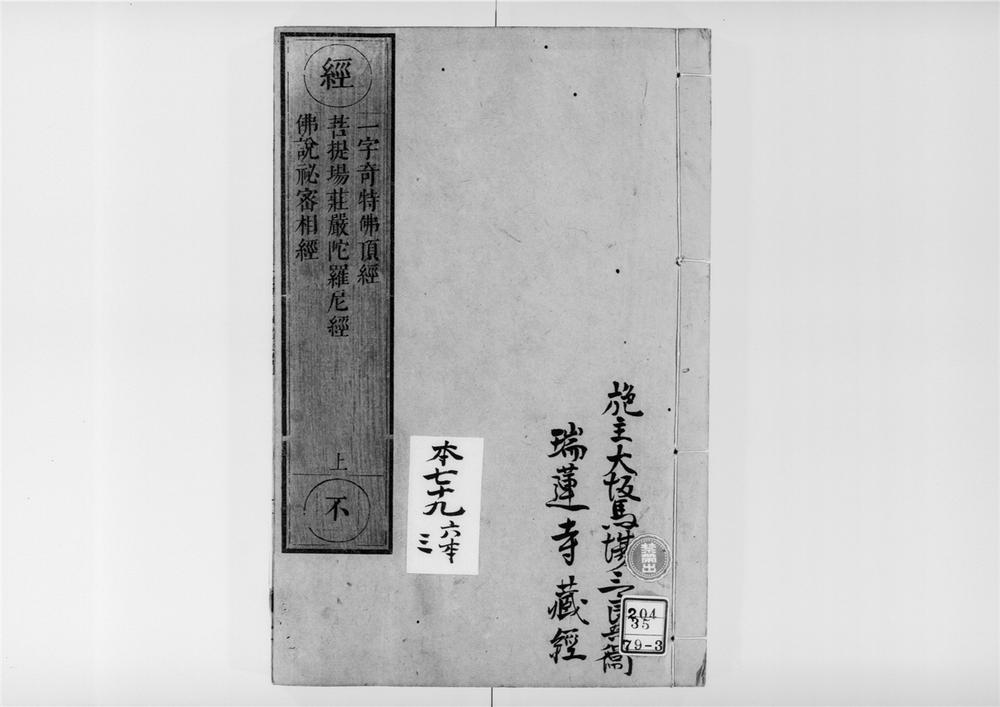 經
一字奇特佛頂經
菩提場莊嚴陀羅尼經
佛說祕密相經
上
不
本七十九
六本
三
施主大坂馬場
瑞蓮寺藏經
禁帶出
204
35
79-3